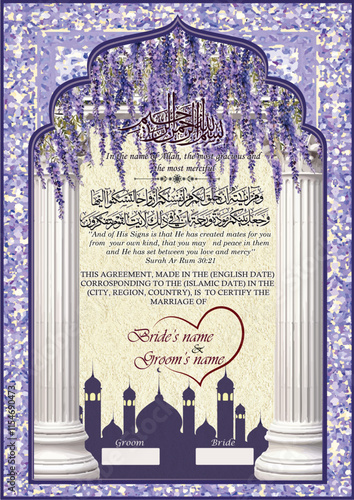 بسم الله الرحمن الرحيم
In the name of Allah, the most gracious and
the most merciful
ومن آياته أن خلق لكم من أنفسكم أزواجا لتسكنوا إليها
وجعل بينكم مودة ورحمة إن في ذلك لآيات لقوم يتفكرون
"And of His Signs is that He has created mates for you
from your own kind, that you may nd peace in them
and He has set between you love and mercy"
Surah Ar Rum 30:21
THIS AGREEMENT, MADE IN THE (ENGLISH DATE)
CORRSPONDING TO THE (ISLAMIC DATE) IN THE
(CITY, REGION, COUNTRY), IS TO CERTIFY THE
MARRIAGE OF
Bride's name
&
Groom's name
Groom Bride
Adobe Stock | #1154690473